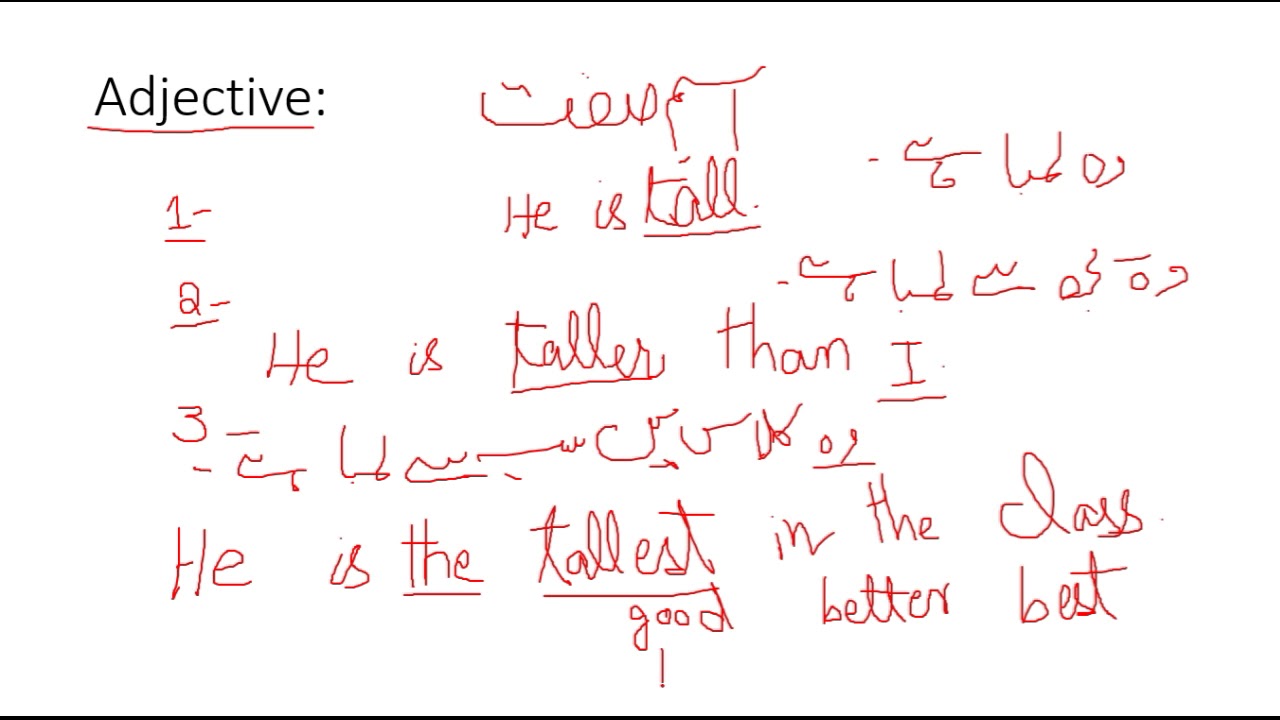 Adjective:
وہ لمبا ہے -
1- He is tall.
2-
وہ سے لمبا ہے -
He is taller than I.
3-
وہ کلاس میں سب سے لمبا ہے -
He is the tallest in the class.
good better best